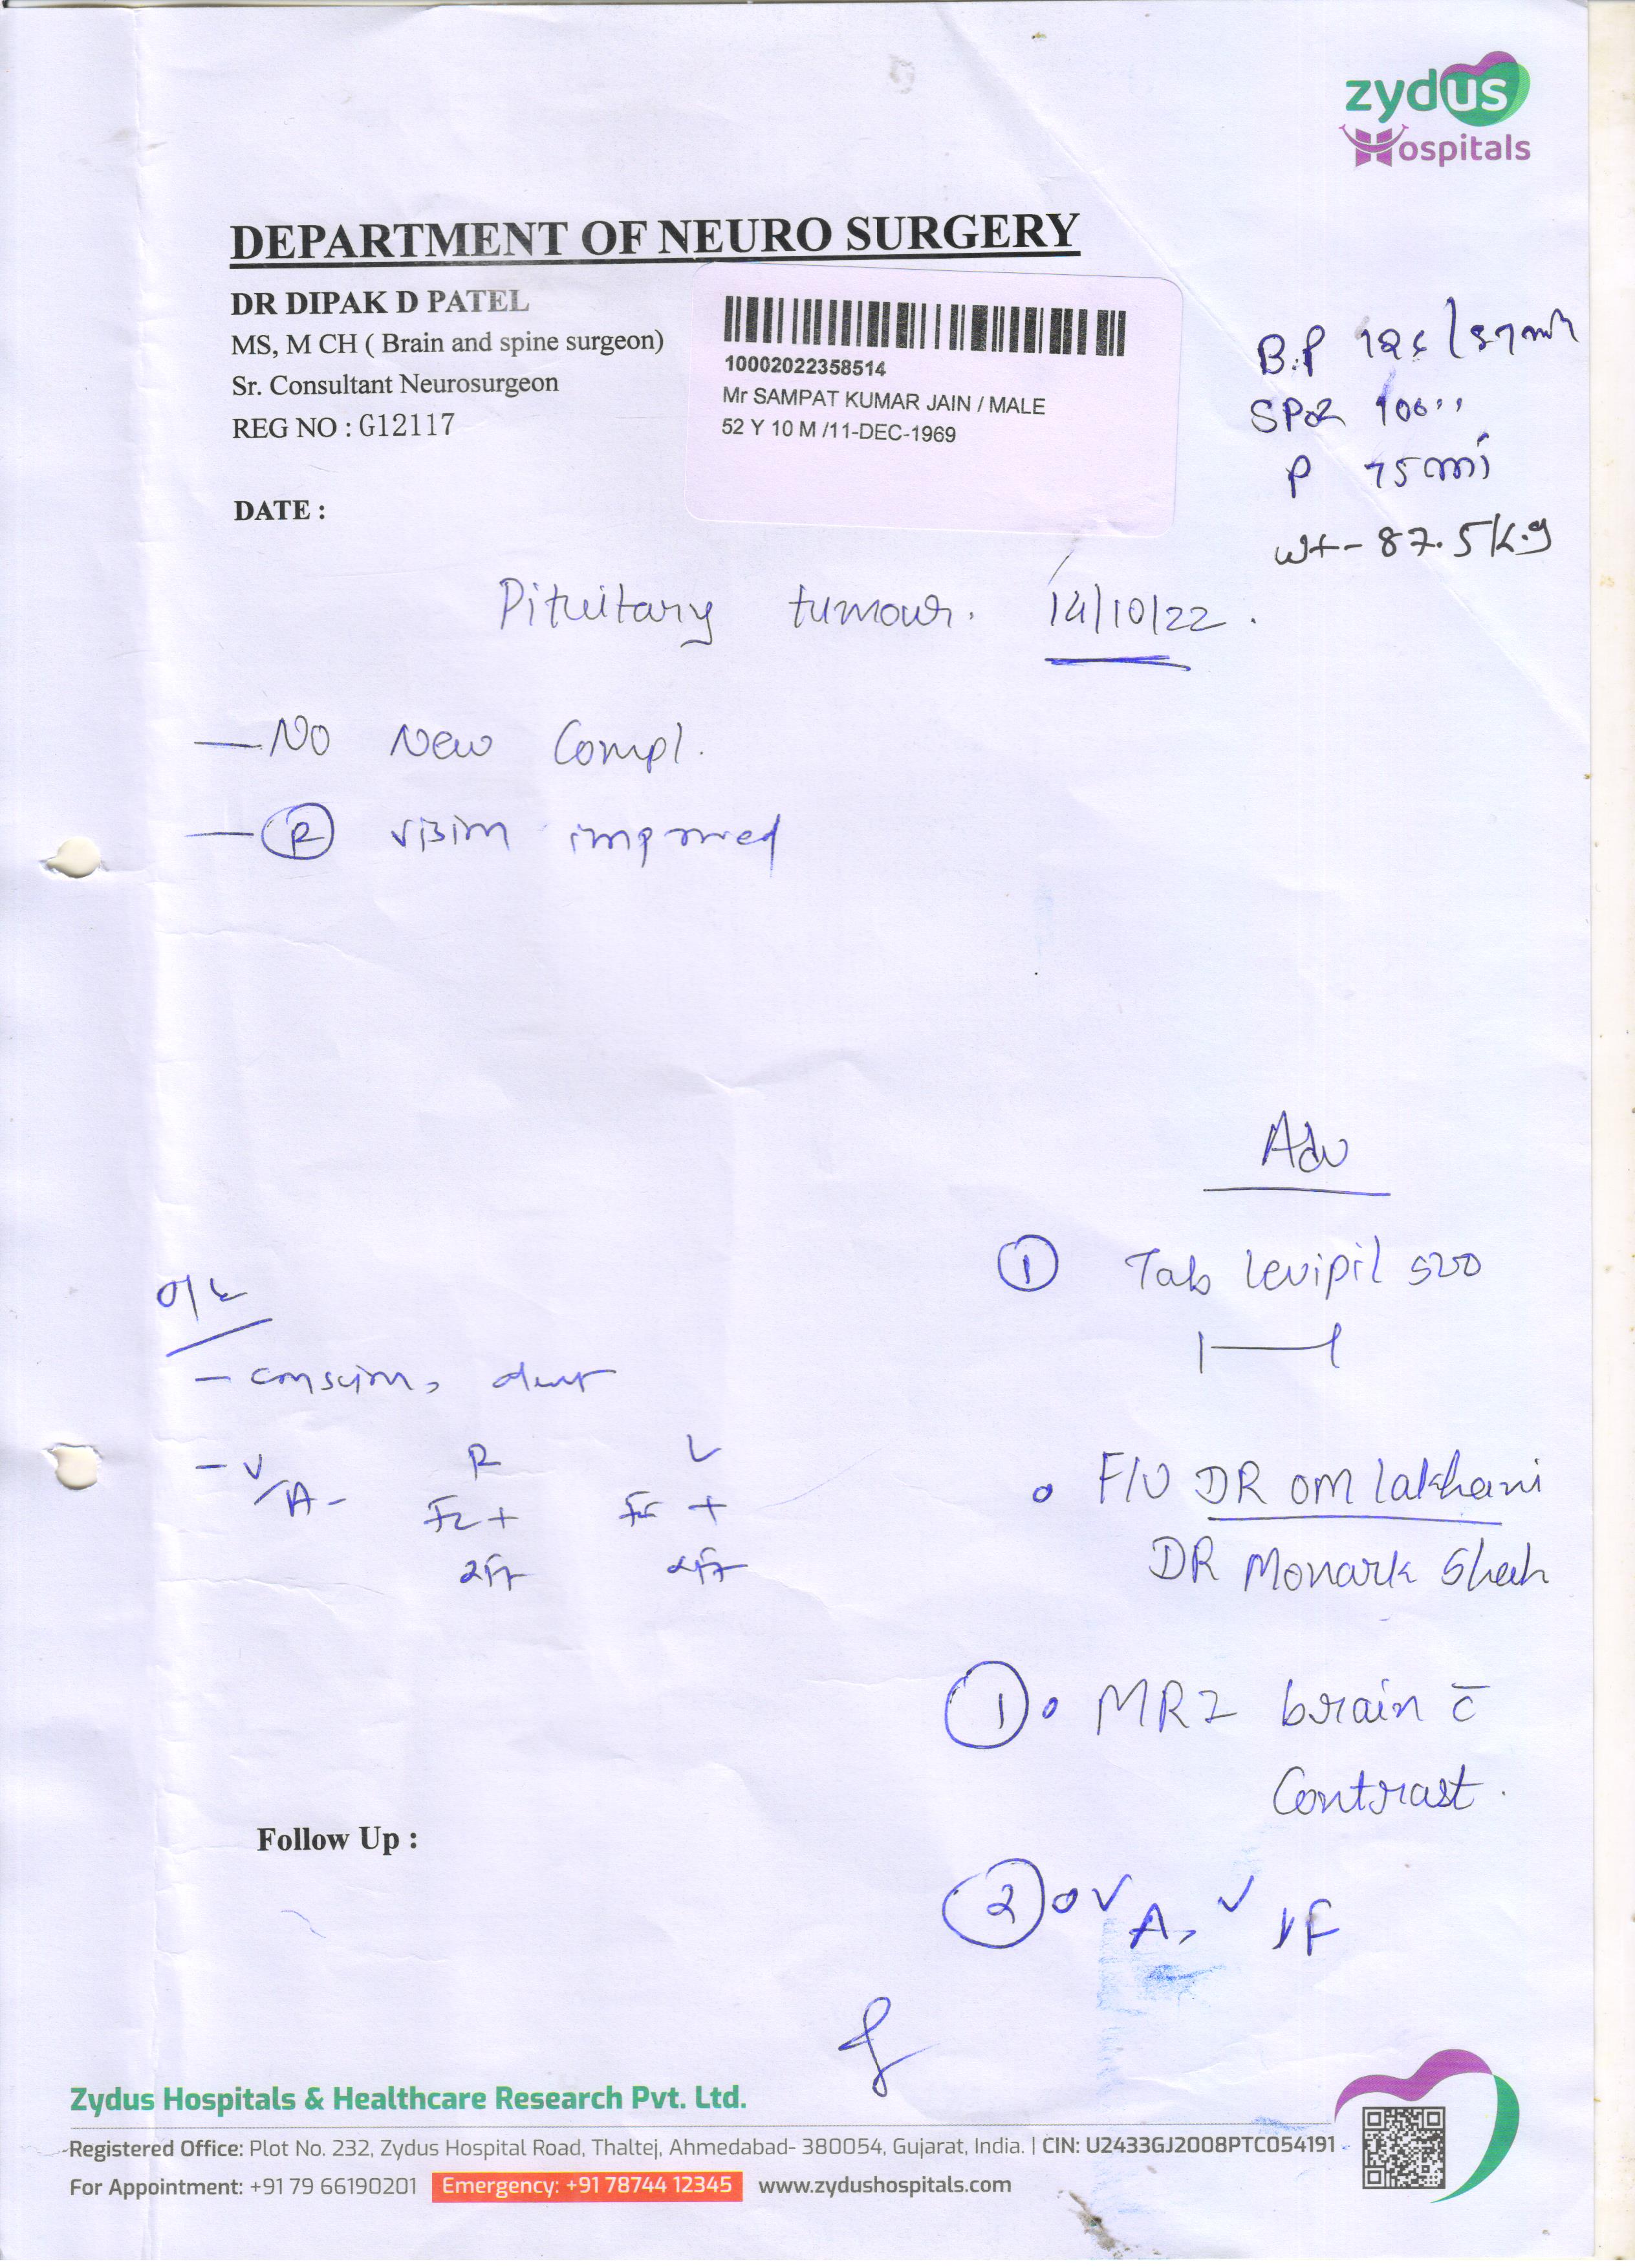 zydus
Hospitals
DEPARTMENT OF NEURO SURGERY
DR DIPAK D PATEL
MS, M CH ( Brain and spine surgeon)
Sr. Consultant Neurosurgeon
REG NO : G12117
10002022358514
Mr SAMPAT KUMAR JAIN / MALE
52 Y 10 M /11-DEC-1969
B.P
SPO2 100
P 75 mi
wt- 87.5 kg
DATE :
Pituitary tumour. 14/10/22.
- No New Compl.
- R vision improved
Adv
① Tab levipil 500
1 — 1
O/E
- conscious,
- V/A - R L
+ +
F/U DR OM lakhani
DR Monark Shah
① MRI brain c̄
Contrast.
② V A, V F
Follow Up :
Zydus Hospitals & Healthcare Research Pvt. Ltd.
Registered Office: Plot No. 232, Zydus Hospital Road, Thaltej, Ahmedabad- 380054, Gujarat, India. | CIN: U2433GJ2008PTC054191
For Appointment: +91 79 66190201 Emergency: +91 78744 12345 www.zydushospitals.com